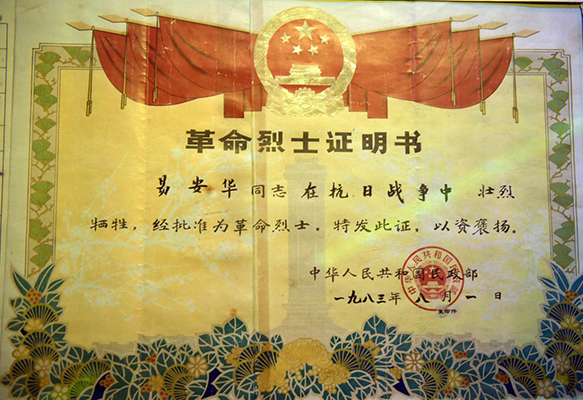 革命烈士证明书
易安华同志在抗日战争中 壮烈
牺牲，经批准为革命烈士。特发此证，以资褒扬。
中华人民共和国民政部
一九八三年八月一日
复印件